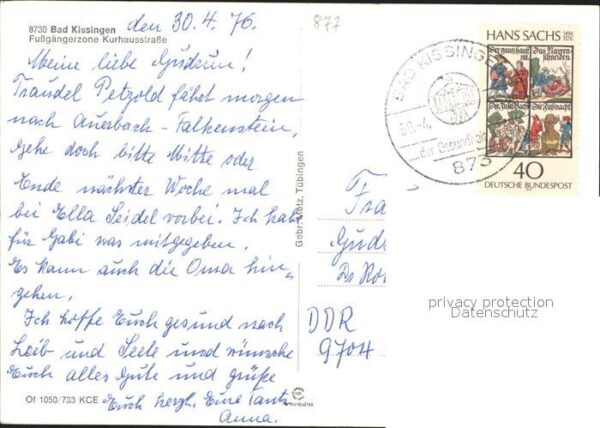 8730 Bad Kissingen
Fußgängerzone Kurhausstraße
den 30.4.76.
877
Meine liebe Gudrun!
Traudel Petzold fährt morgen
nach Auerbach-Falkenstein,
Gehe doch bitte Mitte oder
Ende nächster Woche mal
bei Ella Seidel vorbei. Ich habe
für Gabi was mitgegeben.
Es kann auch die Oma hin„
gehen.
Ich hoffe Euch gesund nach
Leib und Seele und wünsche
Euch alles Gute und grüße
Euch herzl. Eure Tante
Anna.
Of 1050/733 KCE
Gebr. Metz, Tübingen
BAD KISSING
30.-4.
873
HANS SACHS
40
DEUTSCHE BUNDESPOST
Fra
Gudr
DDR
9704
privacy protection
Datenschutz